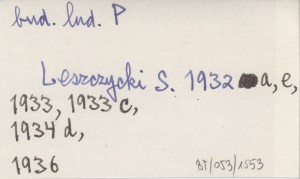 bud. lud. P
Leszczycki S. 1932 a, e,
1933, 1933 c,
1934 d,
1936
BT/053/1553